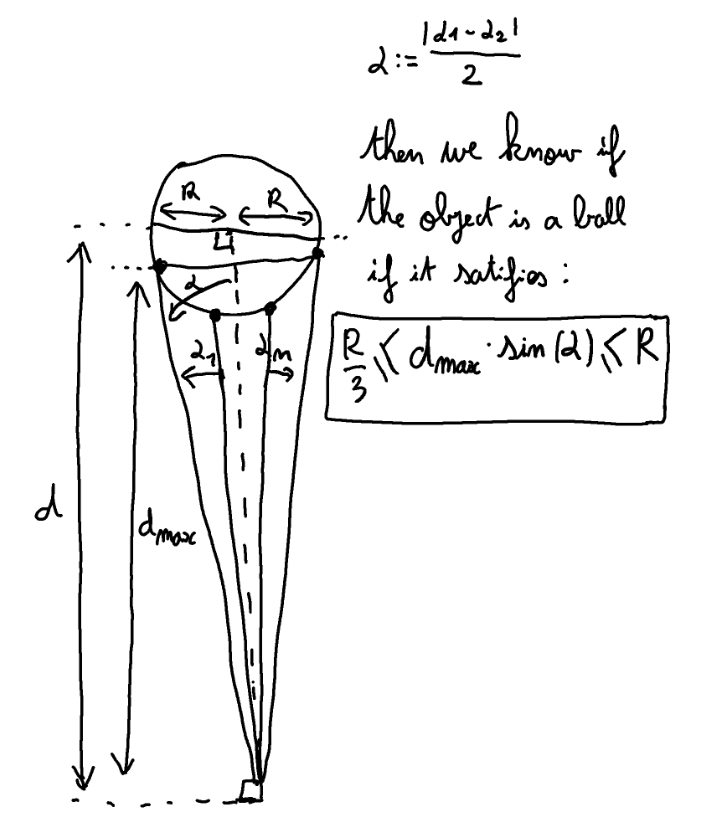 α := |α1 - α2| / 2
then we know if
the object is a ball
if it satifies :
R/3 ≤ dmax · sin(α) ≤ R
R R
α
α1 αm
d
dmax